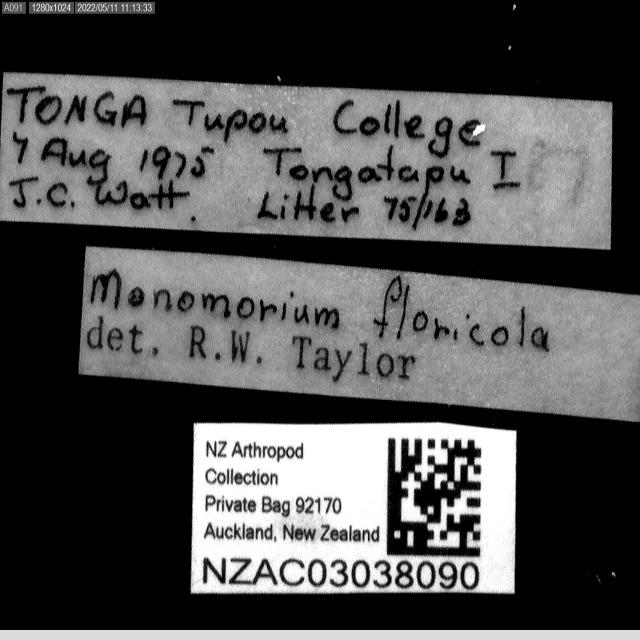 A091 1280x1024 2022/05/11 11:13:33
TONGA Tupou College
7 Aug 1975 Tongatapu I
J.C. Watt. Litter 75/163
Monomorium floricola
det. R.W. Taylor
NZ Arthropod
Collection
Private Bag 92170
Auckland, New Zealand
NZAC03038090